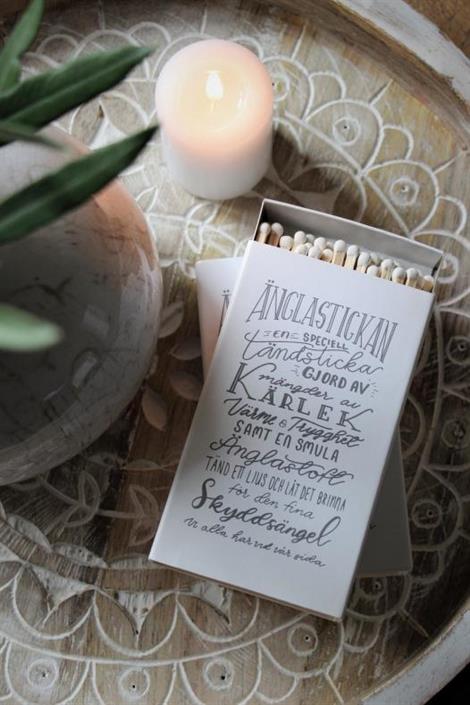 ÄNGLASTICKAN
EN SPECIELL
tändsticka
GJORD AV
mängder av
KÄRLEK
Värme & Trygghet
SAMT EN SMULA
Änglastoft
TÄND ETT LJUS OCH LÅT DET BRINNA
för den fina
Skyddsängel
Vi alla har vid vår sida